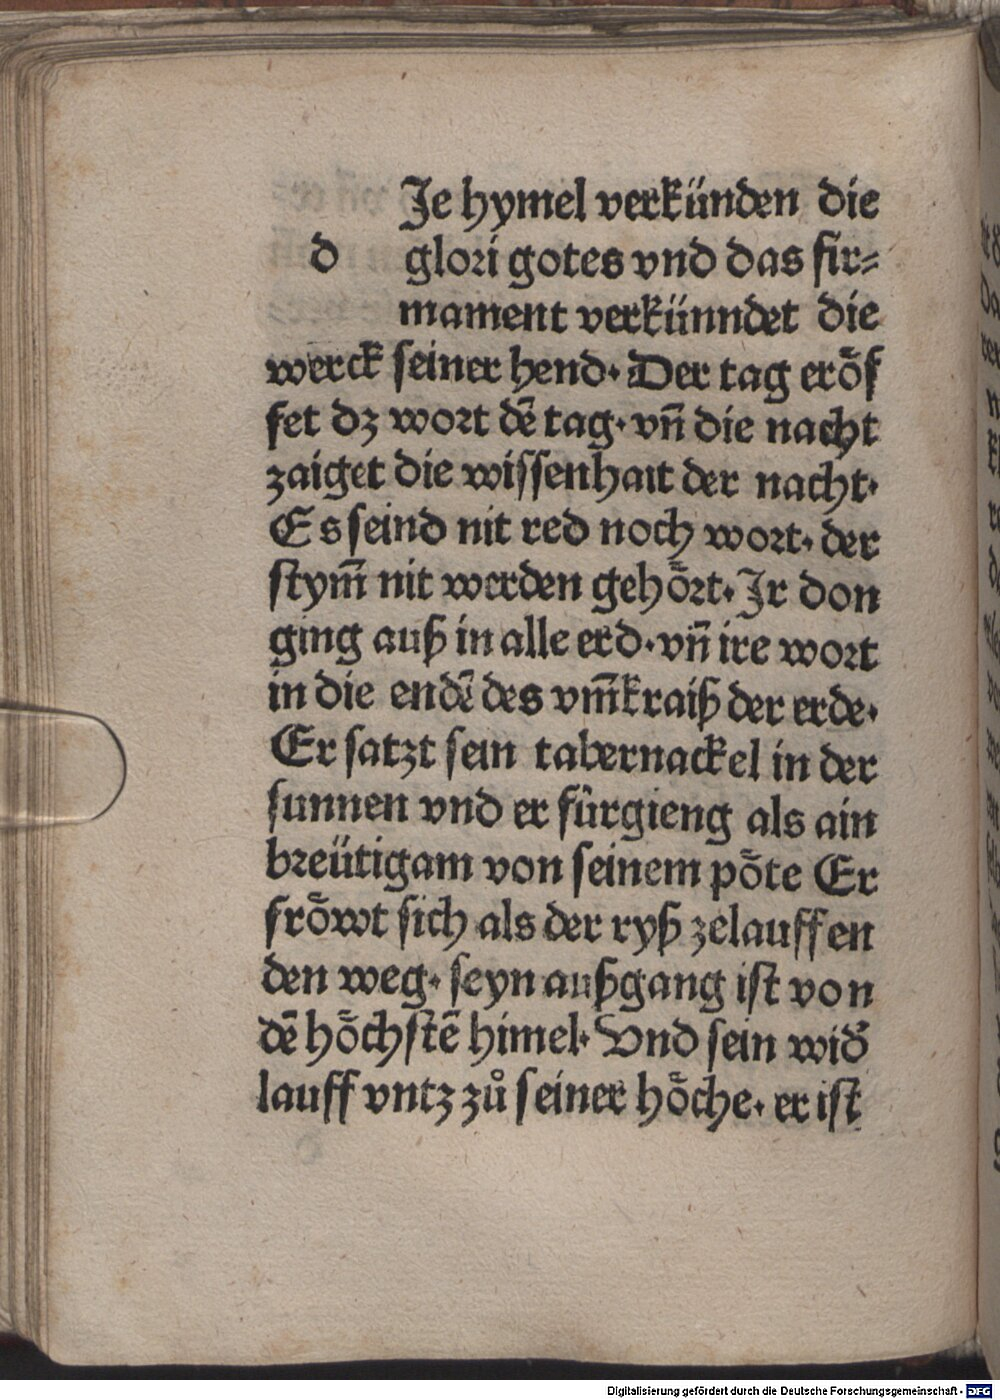 Je hymel verkünden die
d glori gotes vnd das fir⸗
mament verkünndet die
werck seiner hend. Der tag eröf
fet dz wort dē tag. vn̄ die nacht
zaiget die wissenhait der nacht.
Es seind nit red noch wort. der
stym̄ nit werden gehört. Jr don
ging auß in alle erd. vn̄ ire wort
in die endē des vm̄kraiß der erde.
Er satzt sein tabernackel in der
sunnen vnd er fürgieng als ain
breütigam von seinem pöte Er
fröwt sich als der ryß zelauffen
den weg. seyn außgang ist von
dē höchstē himel. Vnd sein wid̄
lauff vntz zů seiner höche. er ist
Digitalisierung gefördert durch die Deutsche Forschungsgemeinschaft - DFG